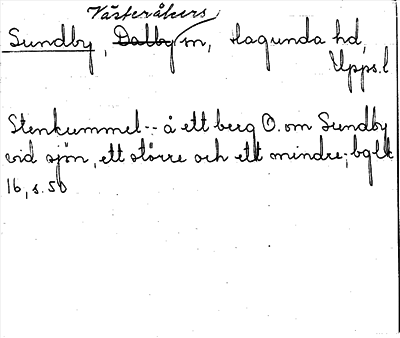 Västeråkers
Sundby, Dalby sn, Hagunda hd,
Upps. l
Stenkummel -- å ett berg O. om Sundby
vid sjön, ett större och ett mindre; bglk
16, s. 50